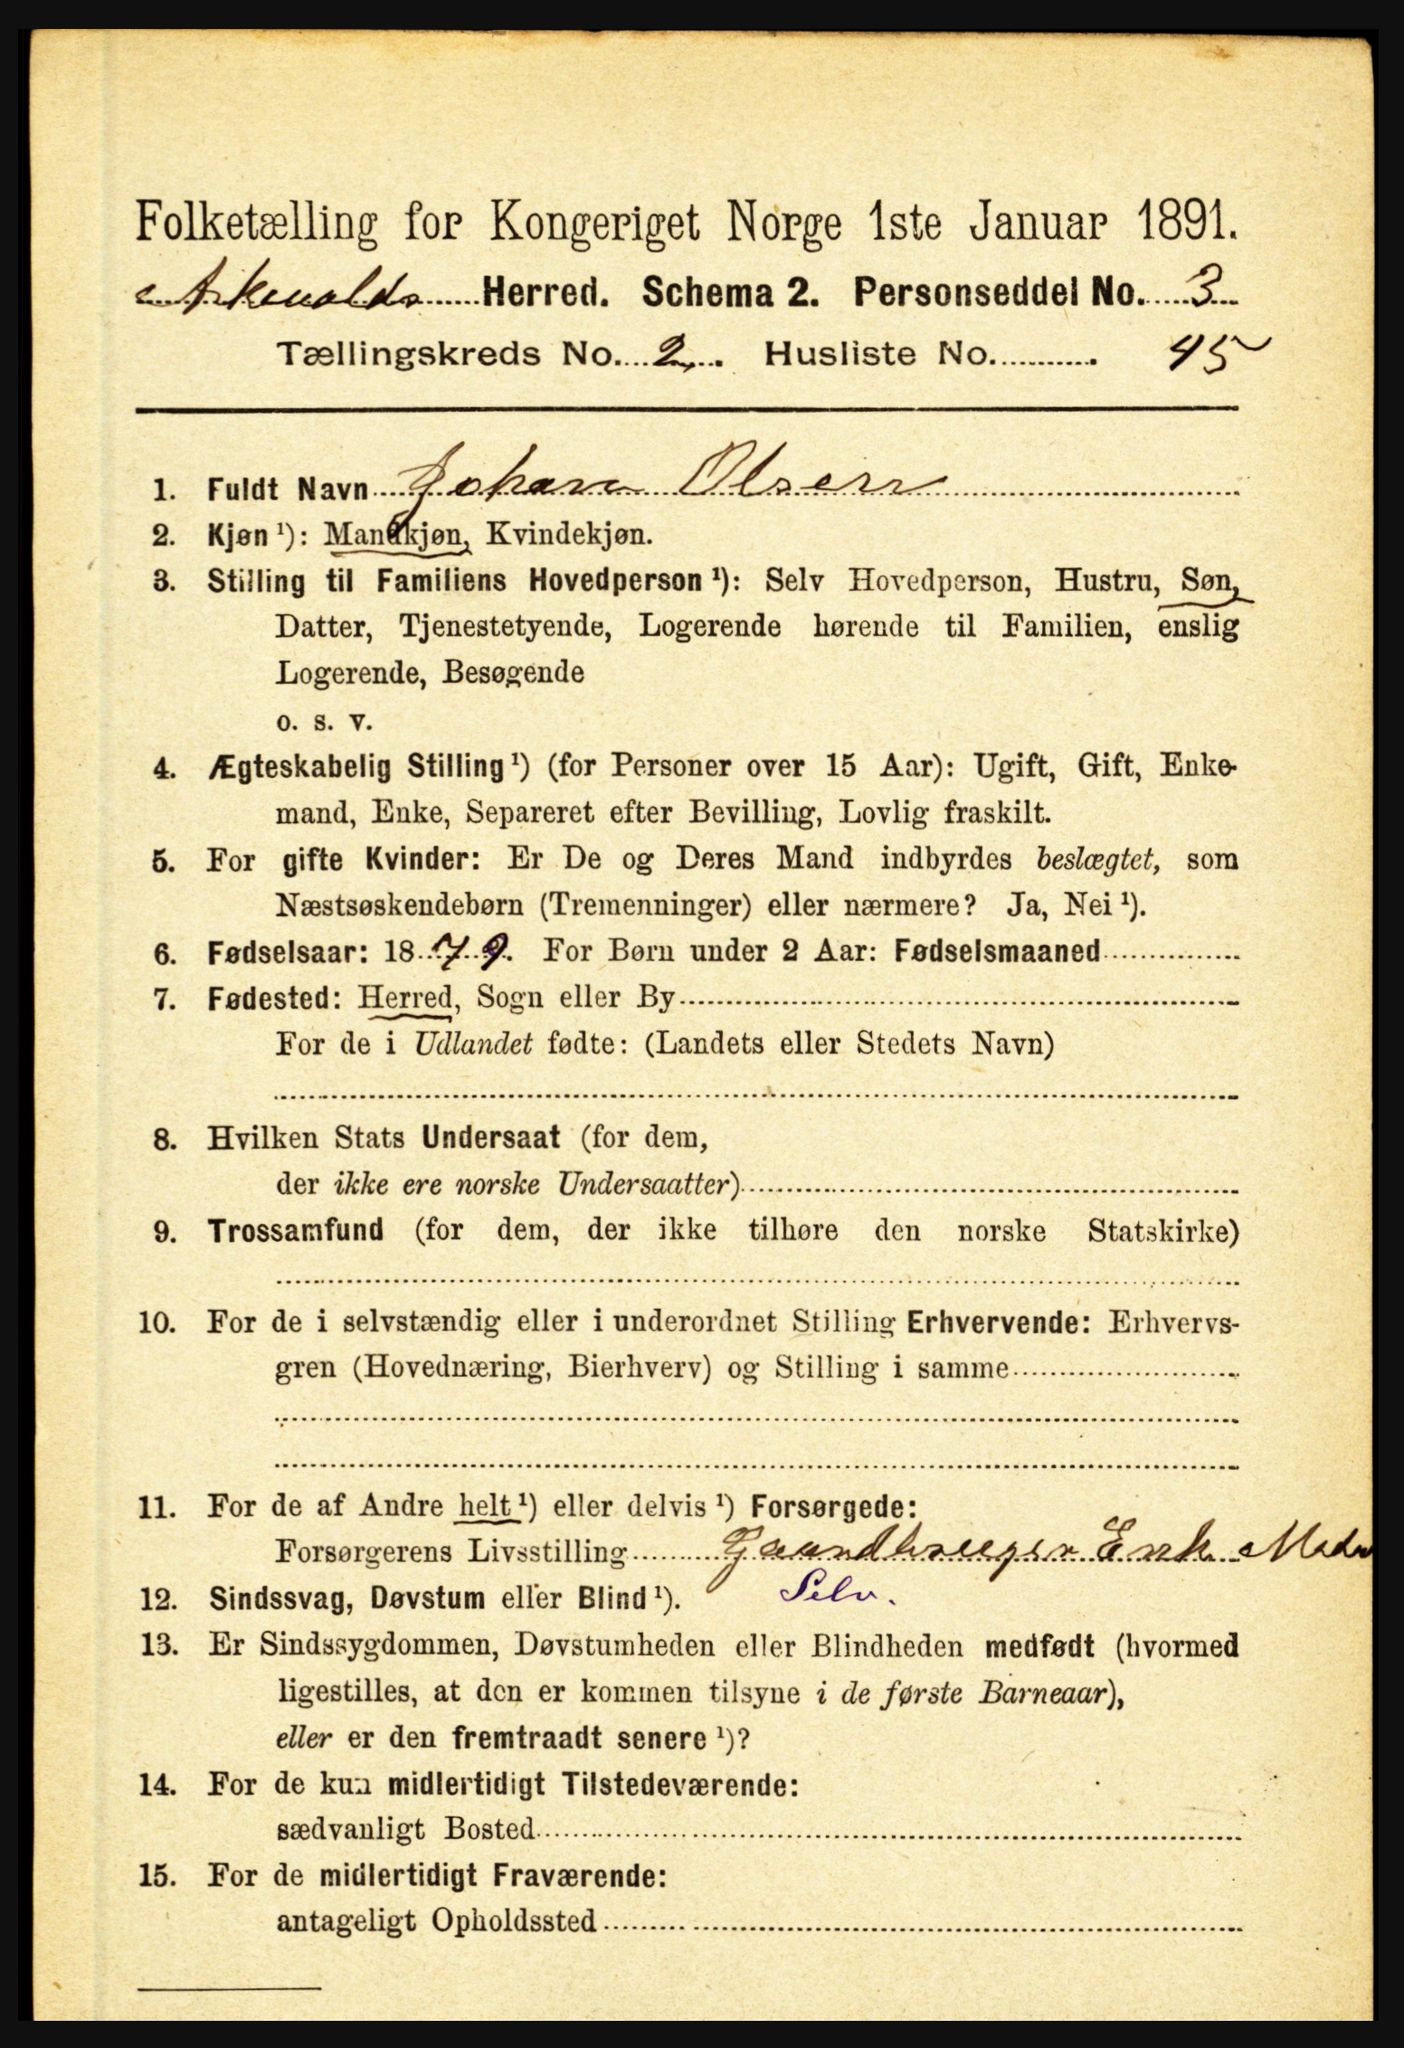 Folketælling for Kongeriget Norge 1ste Januar 1891.
Askevolds Herred. Schema 2. Personseddel No. 3
Tællingskreds No. 2. Husliste No. 45
1. Fuldt Navn Johan Olsen
2. Kjøn ¹): Mandkjøn, Kvindekjøn.
3. Stilling til Familiens Hovedperson ¹): Selv Hovedperson, Hustru, Søn,
Datter, Tjenestetyende, Logerende hørende til Familien, enslig
Logerende, Besøgende
o. s. v.
4. Ægteskabelig Stilling ¹) (for Personer over 15 Aar): Ugift, Gift, Enke-
mand, Enke, Separeret efter Bevilling, Lovlig fraskilt.
5. For gifte Kvinder: Er De og Deres Mand indbyrdes beslægtet, som
Næstsøskendebørn (Tremenninger) eller nærmere? Ja, Nei ¹).
6. Fødselsaar: 1879. For Børn under 2 Aar: Fødselsmaaned
7. Fødested: Herred, Sogn eller By
For de i Udlandet fødte: (Landets eller Stedets Navn)
8. Hvilken Stats Undersaat (for dem,
der ikke ere norske Undersaatter)
9. Trossamfund (for dem, der ikke tilhøre den norske Statskirke)
10. For de i selvstændig eller i underordnet Stilling Erhvervende: Erhvervs-
gren (Hovednæring, Bierhverv) og Stilling i samme
11. For de af Andre helt ¹) eller delvis ¹) Forsørgede:
Forsørgerens Livsstilling Gaardbruger Enk
12. Sindssvag, Døvstum eller Blind ¹). Selv.
13. Er Sindssygdommen, Døvstumheden eller Blindheden medfødt (hvormed
ligestilles, at den er kommen tilsyne i de første Barneaar),
eller er den fremtraadt senere ¹)?
14. For de kun midlertidigt Tilstedeværende:
sædvanligt Bosted
15. For de midlertidigt Fraværende:
antageligt Opholdssted